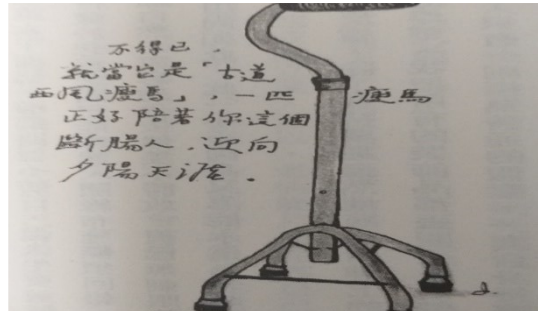 不得已，
就當它是「古道
西風瘦馬」，一匹 瘦馬
正好陪著你這個
斷腸人，迎向
夕陽天涯。
d.